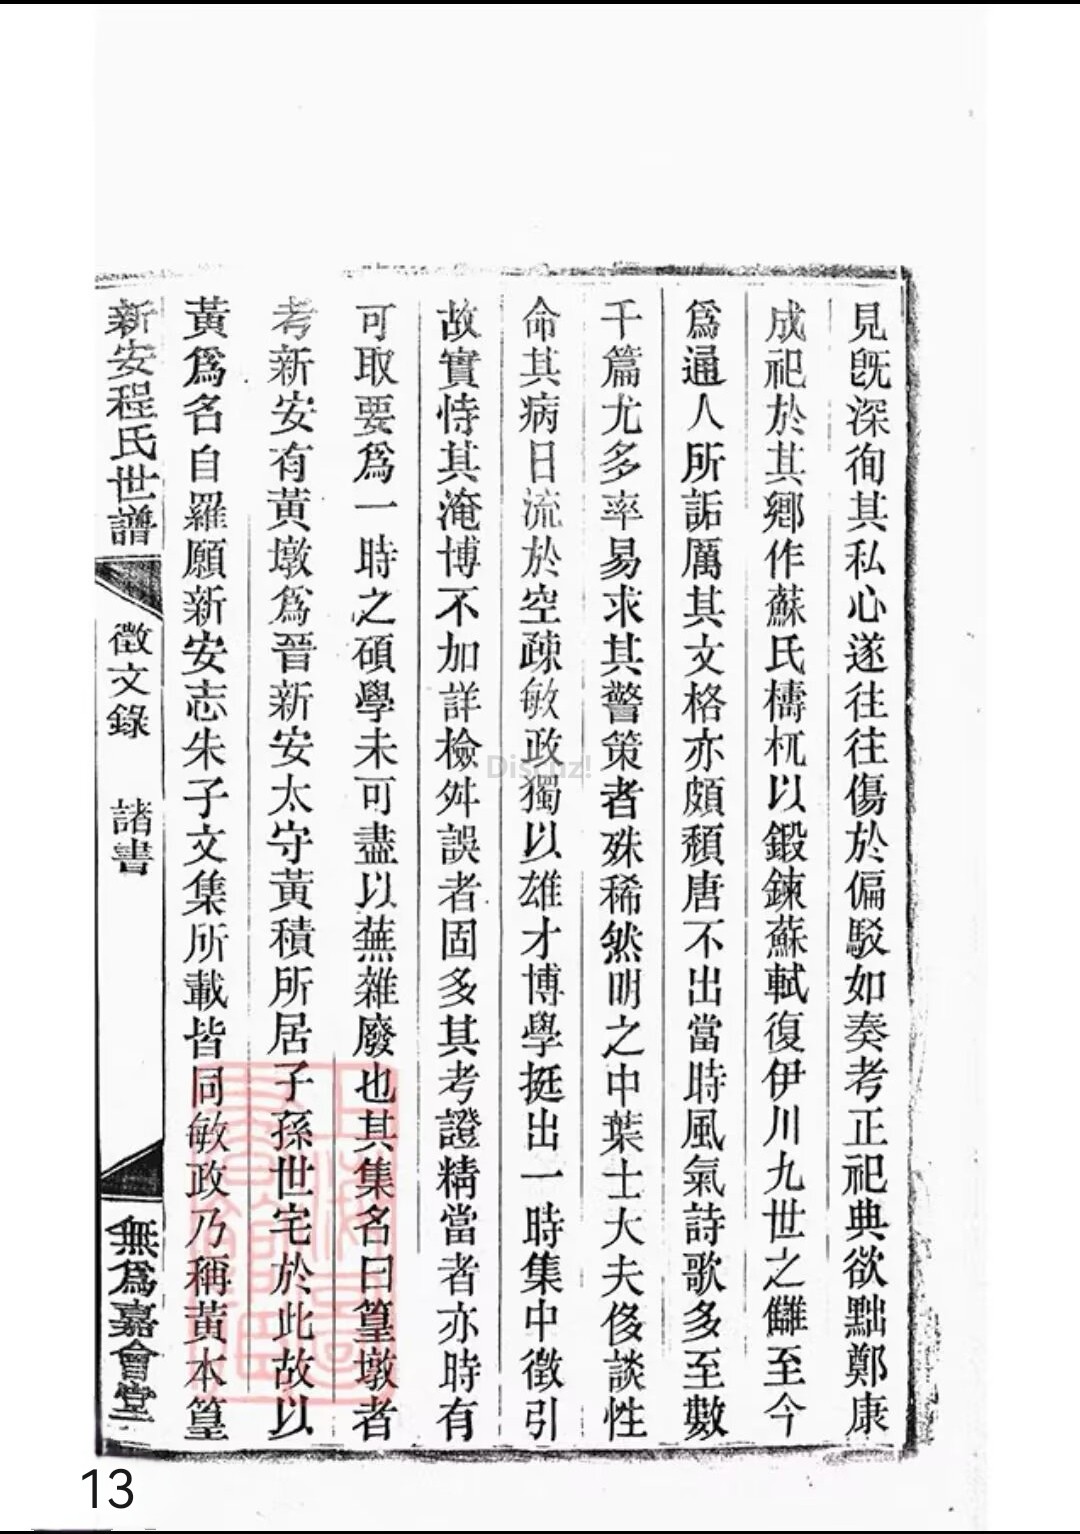 見旣深徇其私心遂往往傷於偏駁如奏考正祀典欲黜鄭康
成祀於其鄉作蘇氏檮杌以鍛鍊蘇軾復伊川九世之讎至今
爲通人所詬厲其文格亦頗頽唐不出當時風氣詩歌多至數
千篇尤多率易求其警策者殊稀然明之中葉士大夫侈談性
命其病日流於空疎敏政獨以雄才博學挺出一時集中徵引
故實恃其淹博不加詳檢舛誤者固多其考證精當者亦時有
可取要爲一時之碩學未可盡以蕪雜廢也其集名曰篁墩者
考新安有黃墩爲晉新安太守黃積所居子孫世宅於此故以
黃爲名自羅願新安志朱子文集所載皆同敏政乃稱黃本篁
新安程氏世譜 徵文錄 諸書 無爲嘉會堂
Discuz!
13